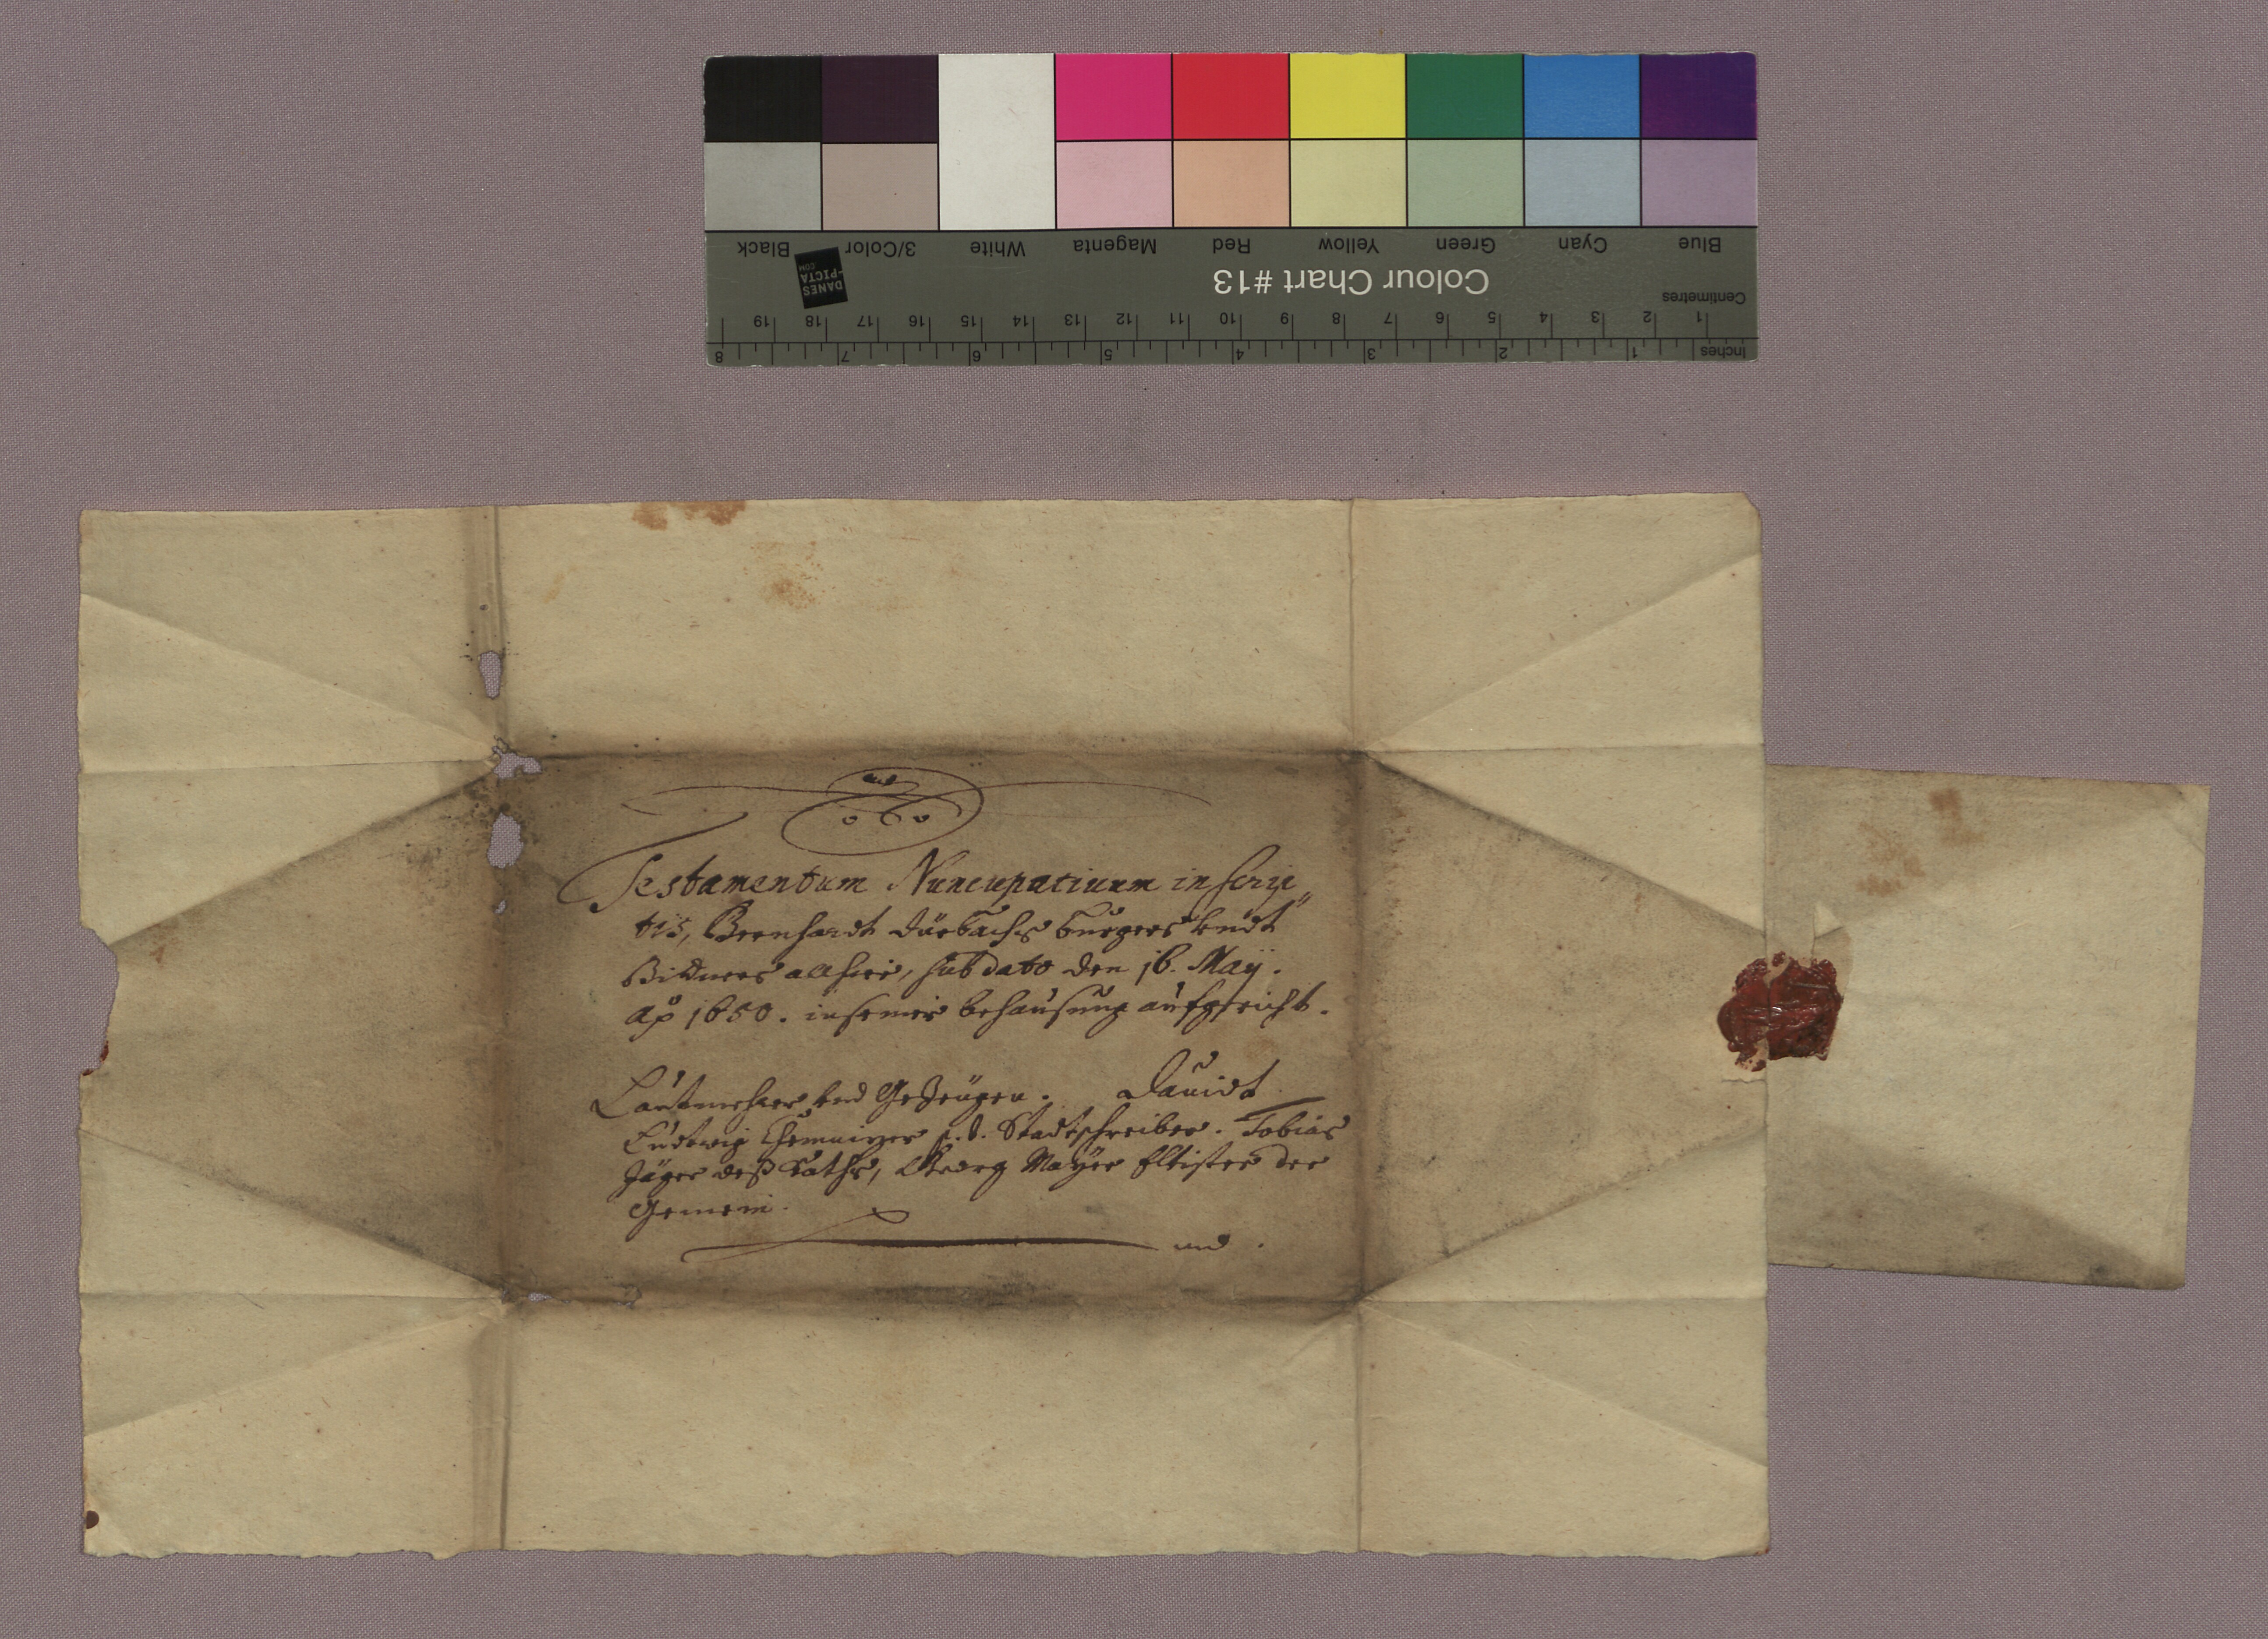 Black 3/Color White Magenta Red Yellow Green Cyan Blue
DANES
-PICTA
.COM
Colour Chart #13
Centimetres
1 2 3 4 5 6 7 8 9 10 11 12 13 14 15 16 17 18 19
Inches 1 2 3 4 5 6 7 8
Testamentum Nuncupatiuum in scrip„
tis, Bernhardt Dürbachs burgers vndt
Bittners allhier, sub dato den 16. Maÿ.
Ao 1650. in seiner behausung aufgericht.
vnd Gezeügen. Dauidt
Ludtwig Stadtschreiber. Tobias
Jäger deß Raths, Georg Maÿer Eltister der
Gemein.